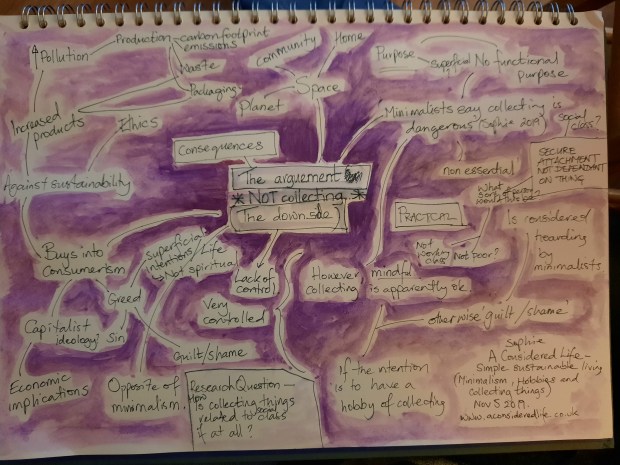 Pollution
Production
carbon footprint
emissions
Waste
Packaging
Increased
products
Ethics
Against sustainability
Community
Home
Space
Planet
Purpose
superficial
No functional
purpose
Minimalists say collecting is
dangerous (Saphie 2019)
social
class?
SECURE
ATTACHMENT
NOT DEPENDANT
ON THING
non essential
What
Consequences
The arguement
* NOT collecting *
(The downside)
PRACTCAL
Not
working
class
Not 'poor?'
Is considered
hoarding
by
minimalists
Buys into
consumerism
Superficial
intentions
Life
Not spiritual
Lack of
control
Very
controlled
However
collecting
mindful
is apparently ok
otherwise 'guilt/shame'
Greed
Sin
Capitalist
ideology?
Guilt/shame
Economic
implications
Opposite of
minimalism.
Research Question –
How
Is collecting things
related to social class
if at all?
If the intention
is to have a
hobby of collecting
Saphie
A Considered Life –
Simple sustainable living
(Minimalism, Hobbies and
collecting things)
Nov 5 2019.
www.aconsideredlife.co.uk